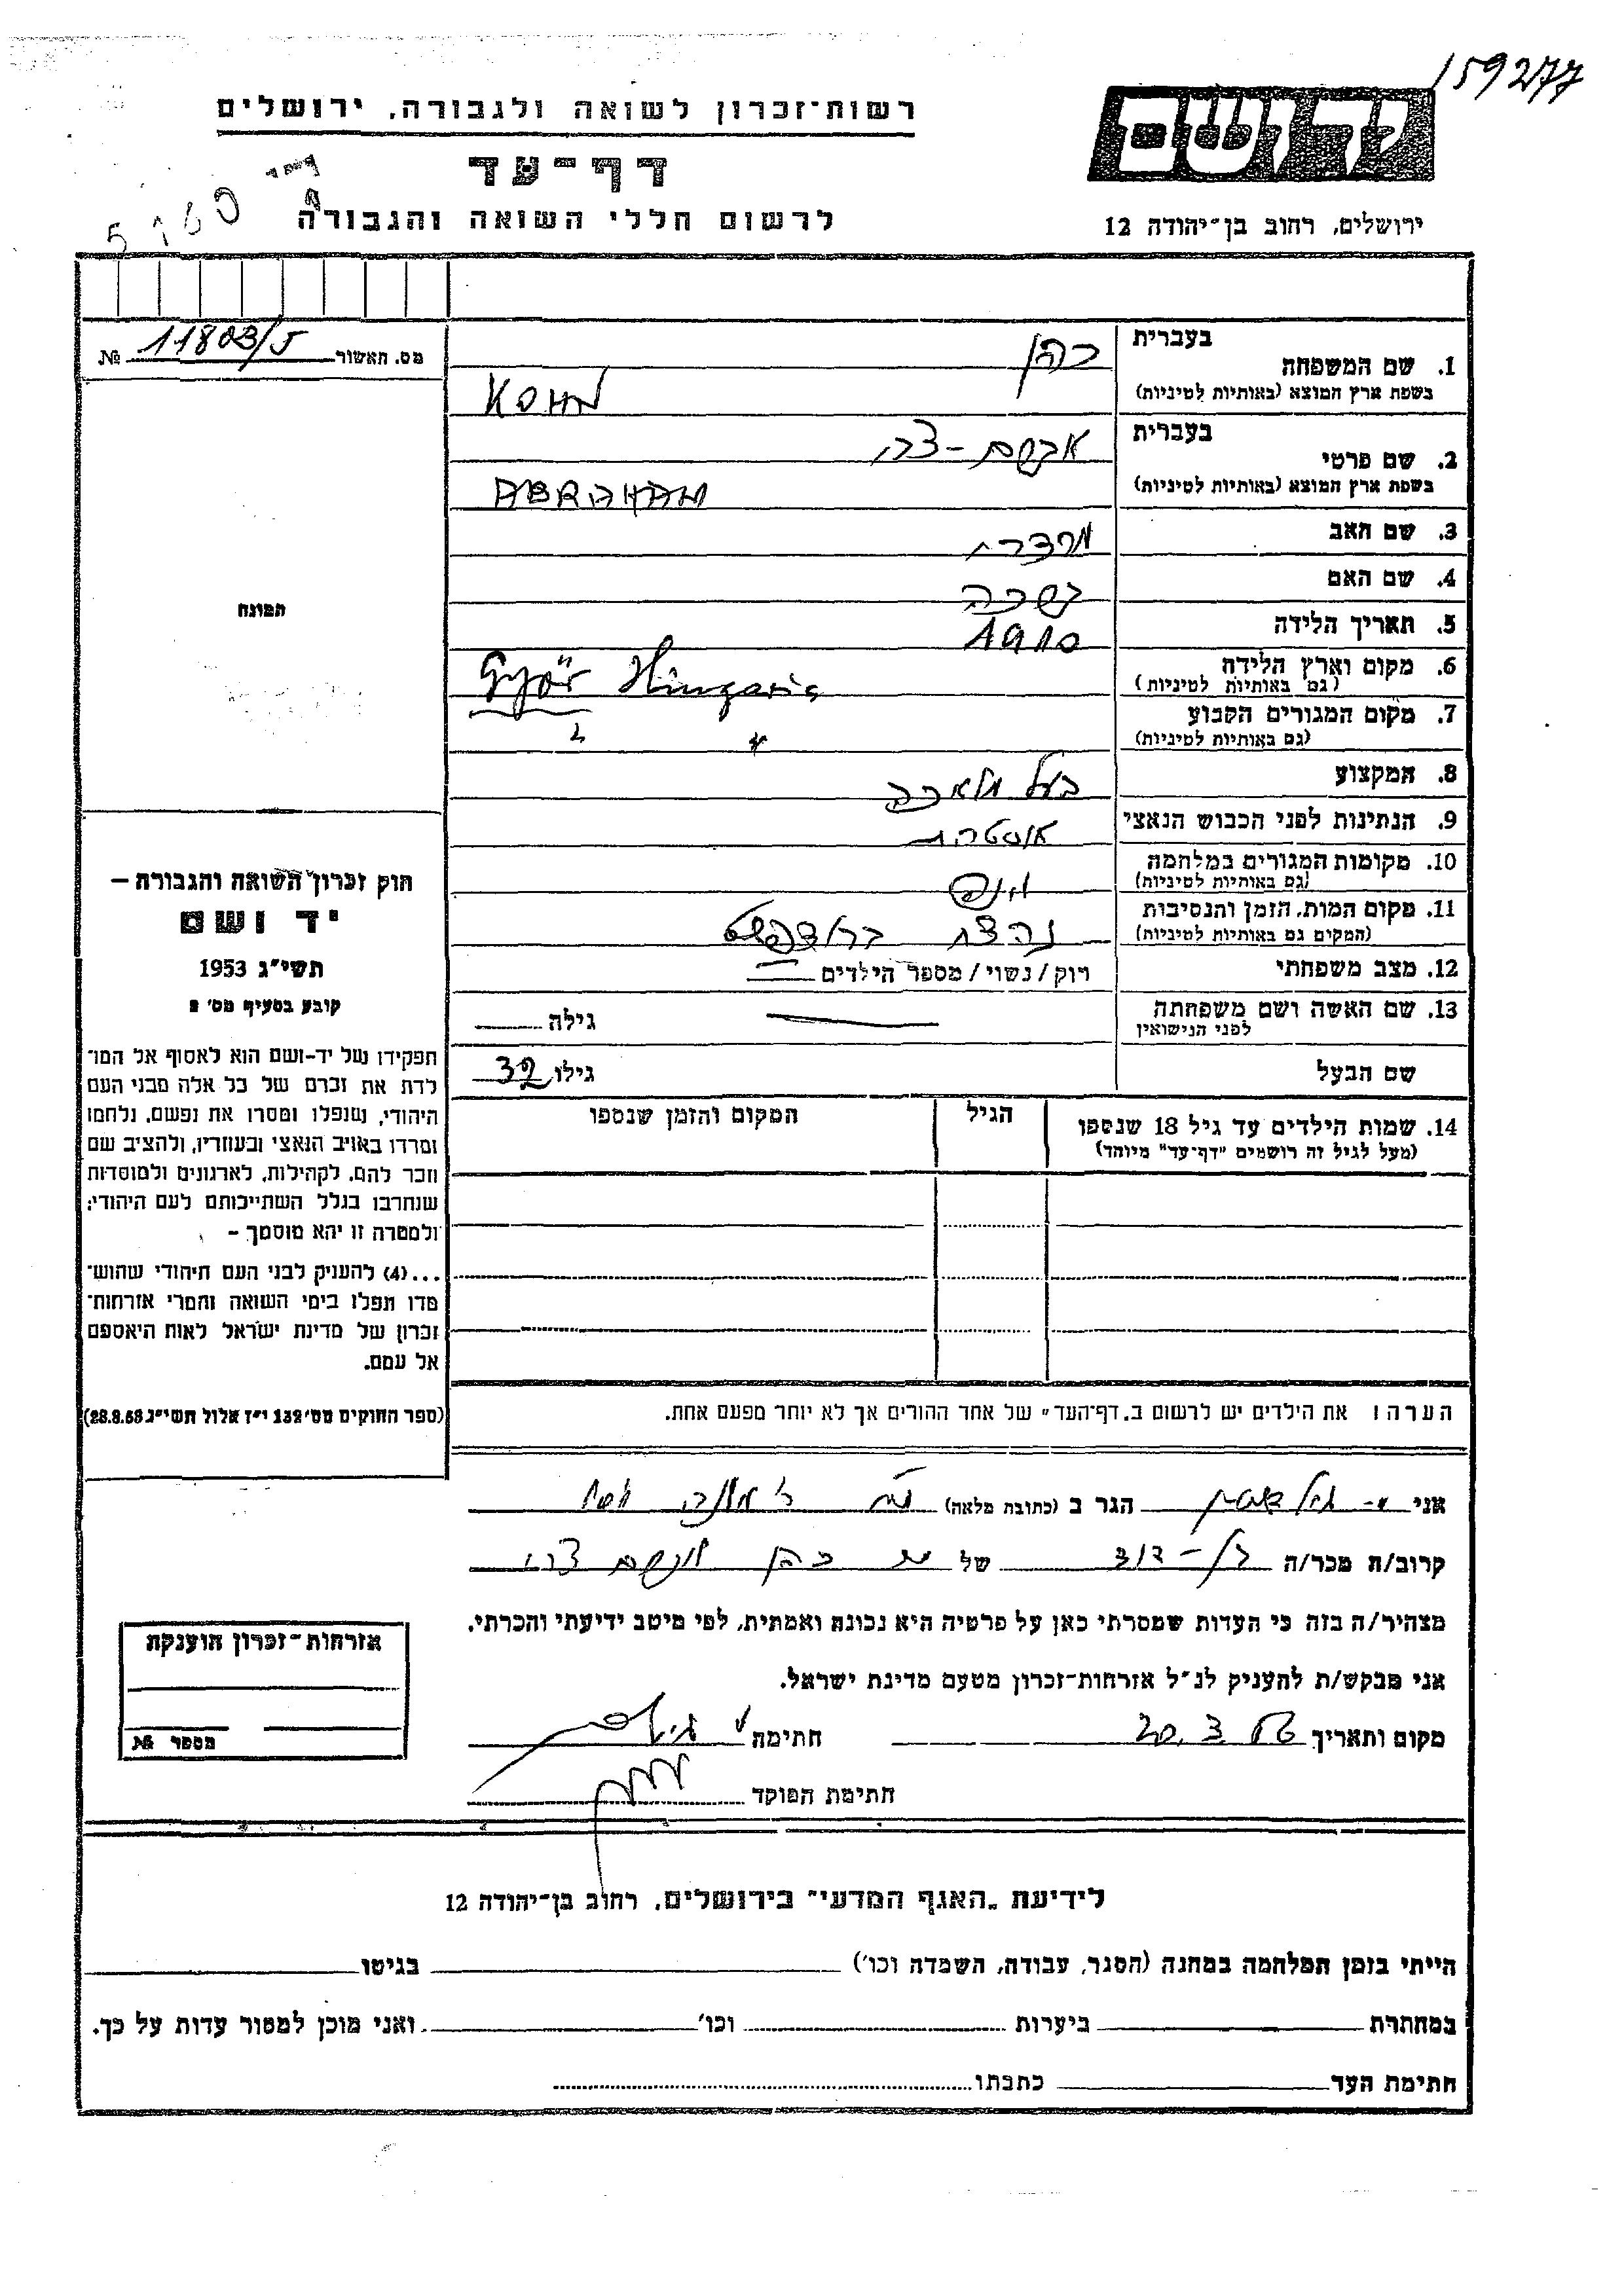 159277
יד ושם
רשות־זכרון לשואה ולגבורה, ירושלים
דף־עד
לרשום חללי השואה והגבורה
ירושלים, רחוב בן־יהודה 12
מס. האשור 11803/5 №
התמונה
1. שם המשפחה בעברית כהן
בשפת ארץ המוצא (באותיות לטיניות) KOHN
2. שם פרטי בעברית אברהם-צבי
בשפת ארץ המוצא (באותיות לטיניות) ABRAHAM
3. שם האב מרדכי
4. שם האם
5. תאריך הלידה 1910
6. מקום וארץ הלידה Győr Hungaria
(גם באותיות לטיניות)
7. מקום המגורים הקבוע " "
(גם באותיות לטיניות)
8. המקצוע בעל מלאכה
9. הנתינות לפני הכבוש הנאצי אוסטרי
10. מקומות המגורים במלחמה
(גם באותיות לטיניות)
11. מקום המות, הזמן והנסיבות נהרג בבודפשט
(המקום גם באותיות לטיניות)
12. מצב משפחתי רווק/נשוי/מספר הילדים
13. שם האשה ושם משפחתה גילה
לפני הנישואין
שם הבעל גילו 32
14. שמות הילדים עד גיל 18 שנספו הגיל המקום והזמן שנספו
(מעל לגיל זה רושמים "דף־עד" מיוחד)
חוק זכרון השואה והגבורה –
יד ושם
תשי"ג 1953
קובע בסעיף מס' 2
תפקידו של יד־ושם הוא לאסוף אל המו־
לדת את זכרם של כל אלה מבני העם
היהודי, שנפלו ומסרו את נפשם, נלחמו
ומרדו באויב הנאצי ובעוזריו, ולהציב שם
וזכר להם, לקהילות, לארגונים ולמוסדות
שנחרבו בגלל השתייכותם לעם היהודי;
ולמטרה זו יהא מוסמך –
...(4) להעניק לבני העם היהודי שהוש־
מדו ונפלו בימי השואה והמרי אזרחות־
זכרון של מדינת ישראל לאות היאספם
אל עמם.
(ספר החוקים מס' 132 י"ז אלול תשי"ג 28.8.53)
הערה: את הילדים יש לרשום ב„דף־העד" של אחד ההורים אך לא יותר מפעם אחת.
אני הגר ב (כתובת מלאה)
קרוב/ה מכר/ה בן-דוד של
מצהיר/ה בזה כי העדות שמסרתי כאן על פרטיה היא נכונה ואמתית, לפי מיטב ידיעתי והכרתי.
אני מבקש/ת להעניק לנ"ל אזרחות־זכרון מטעם מדינת ישראל.
מקום ותאריך 20.3 חתימה
חתימת הפוקד
אזרחות־זכרון הוענקה
מספר №
לידיעת „האגף המדעי" בירושלים, רחוב בן־יהודה 12
הייתי בזמן המלחמה במחנה (הסגר, עבודה, השמדה וכו') בגיטו
במחתרת ביערות וכו' ואני מוכן למסור עדות על כך.
חתימת העד כתבתו